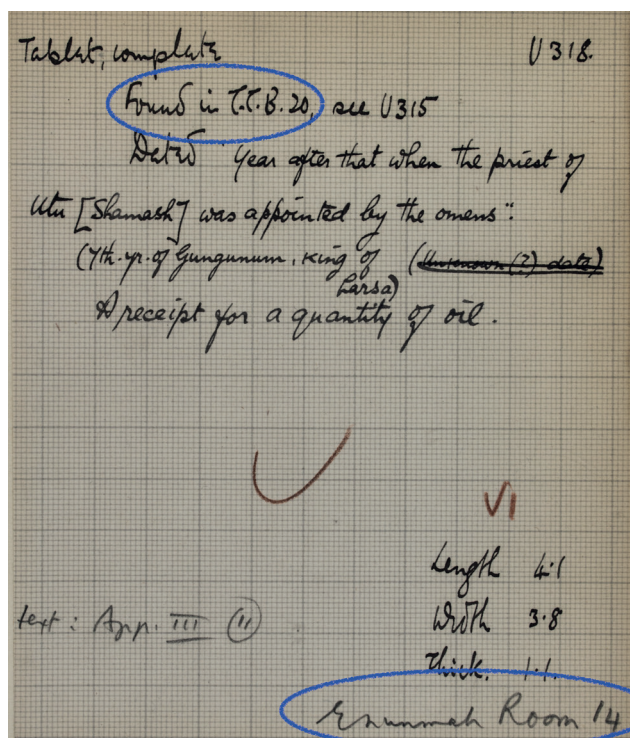 Tablet, complete U 318.
Found in T.T.B. 20, see U315
Dated "Year after that when the priest of
Utu [Shamash] was appointed by the omens".
(7th. yr. of Gungunum, king of Larsa) (Unknown (?) date)
A receipt for a quantity of oil.
VI
Length 4.1
Width 3.8
Thick. 1.1.
text: App. III (11)
Enunmah Room 14